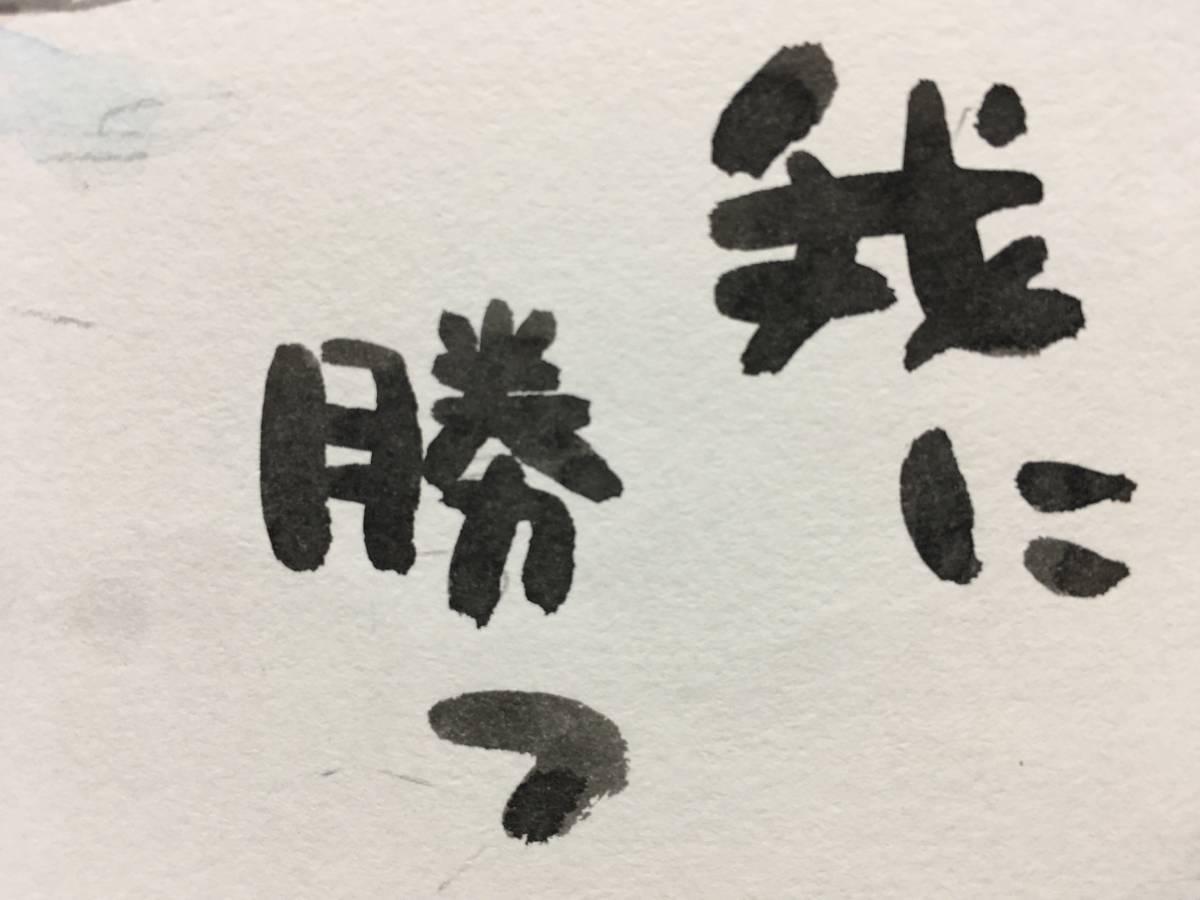 我に
勝つ